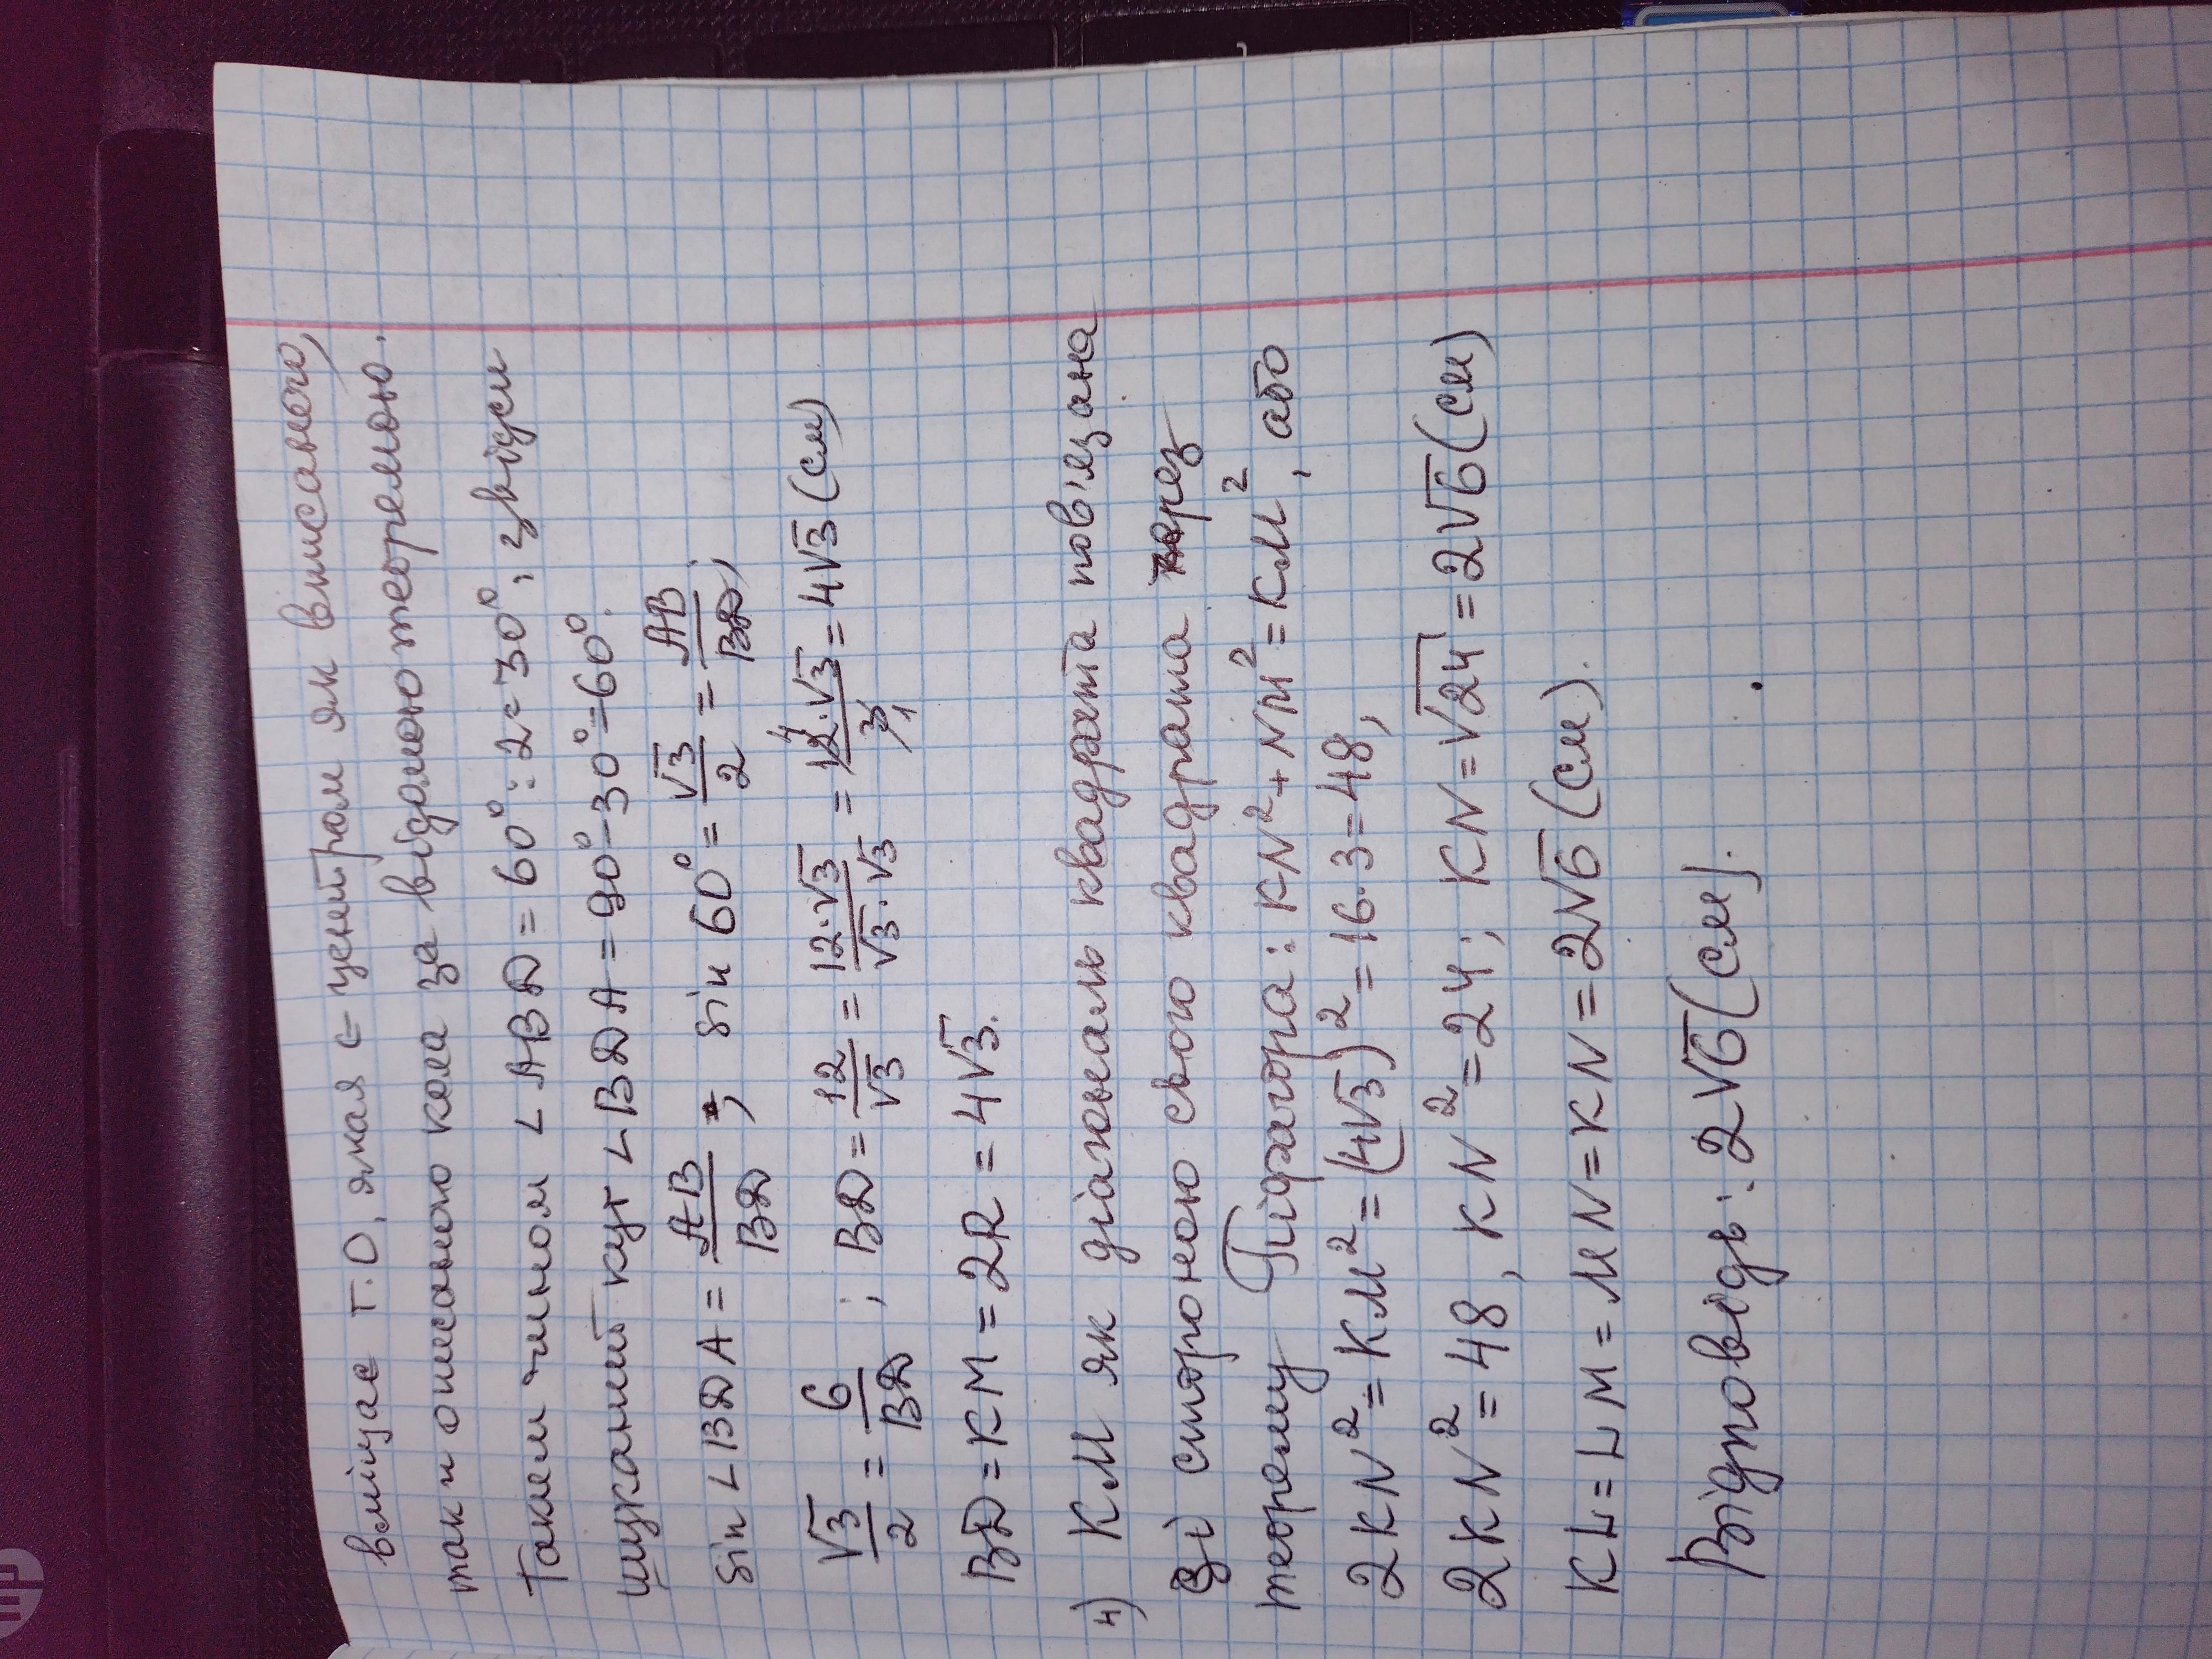 вміщає т.О, якая є центром як вписаного,
так и описаного кола за відомою теоремою.
Таким чином ∠ABD = 60° : 2 = 30°, звідси
шуканий кут ∠BDA = 90° - 30° = 60°.
sin ∠BDA = AB/BD ; sin 60° = √3/2 = AB/BD ;
√3/2 = 6/BD ; BD = 12/√3 = 12·√3/√3·√3 = 12·√3/3 = 4√3 (см)
BD = KM = 2R = 4√3.
4) KM як діагональ квадрата пов'язана
зі стороною свого квадрата через
теорему Піфагора: KN² + NM² = KM², або
2KN² = KM² = (4√3)² = 16·3 = 48,
2KN² = 48, KN² = 24; KN = √24 = 2√6 (см)
KL = LM = MN = KN = 2√6 (см).
Відповідь: 2√6 (см).